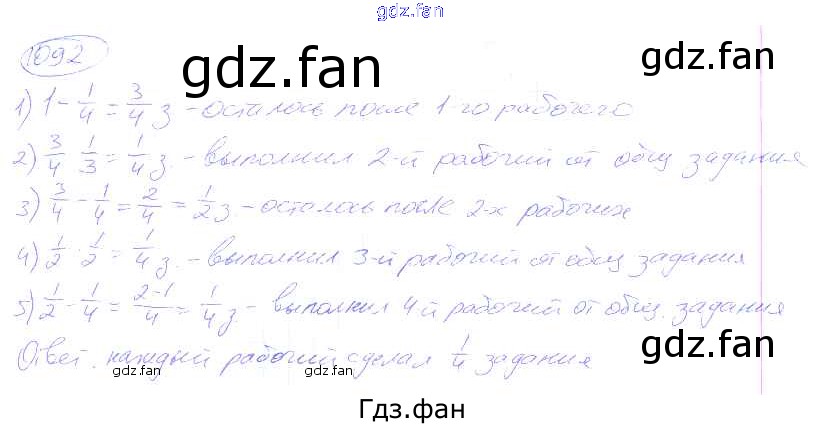 gdz.fan
1092
gdz.fan
gdz.fan
1) 1 - 1/4 = 3/4 з - осталось после 1-го рабочего
2) 3/4 · 1/3 = 1/4 з. - выполнил 2-й рабочий от общ задания
3) 3/4 - 1/4 = 2/4 = 1/2 з. - осталось после 2-х рабочих
4) 1/2 · 1/2 = 1/4 з. - выполнил 3-й рабочий от общ задания
5) 1/2 - 1/4 = 2-1/4 = 1/4 з - выполнил 4 й рабочий от общ. задания
Ответ. каждый рабочий сделал 1/4 задания
gdz.fan
gdz.fan
gdz.fan
Гдз.фан